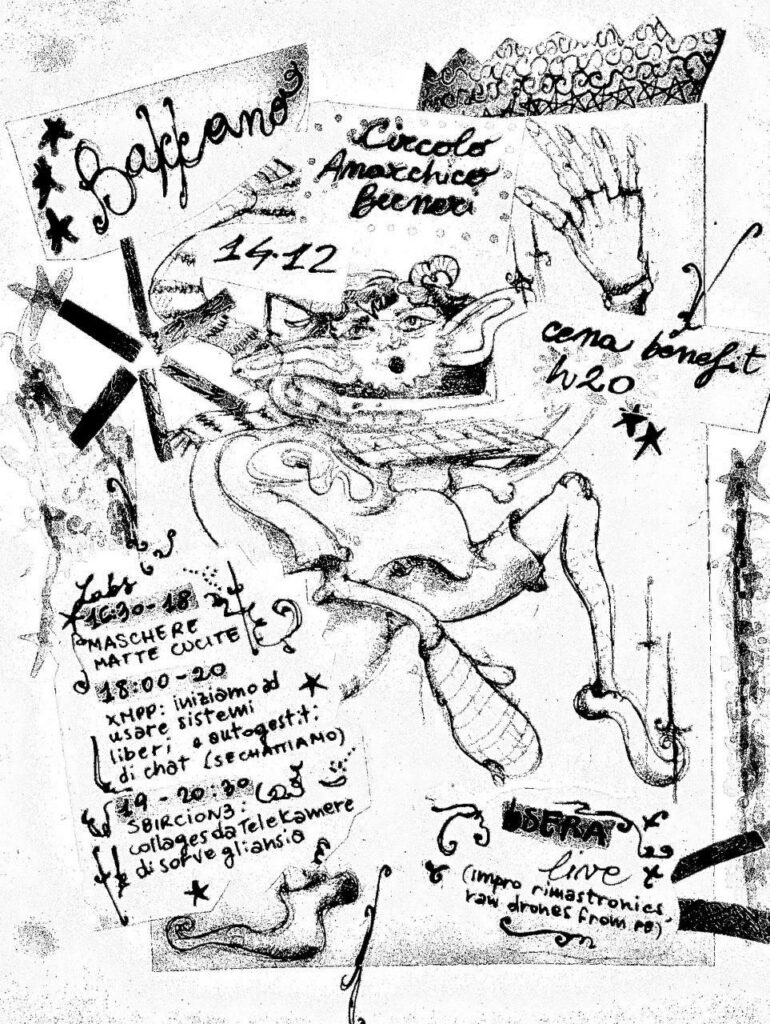 Baffano
Circolo
Anarchico
Berneri
14.12
cena benefit
h20
Labs
1630-18
MASCHERE
MATTE CUCITE
18:00-20
XMPP: iniziamo ad
usare sistemi
liberi e autogestiti
di chat (SECHATTIAMO)
19-20:30
SBIRCION3:
collages da TeleKamere
di sorvegliansia
SERA
live
(impro rimastronics,
raw drones from PB)